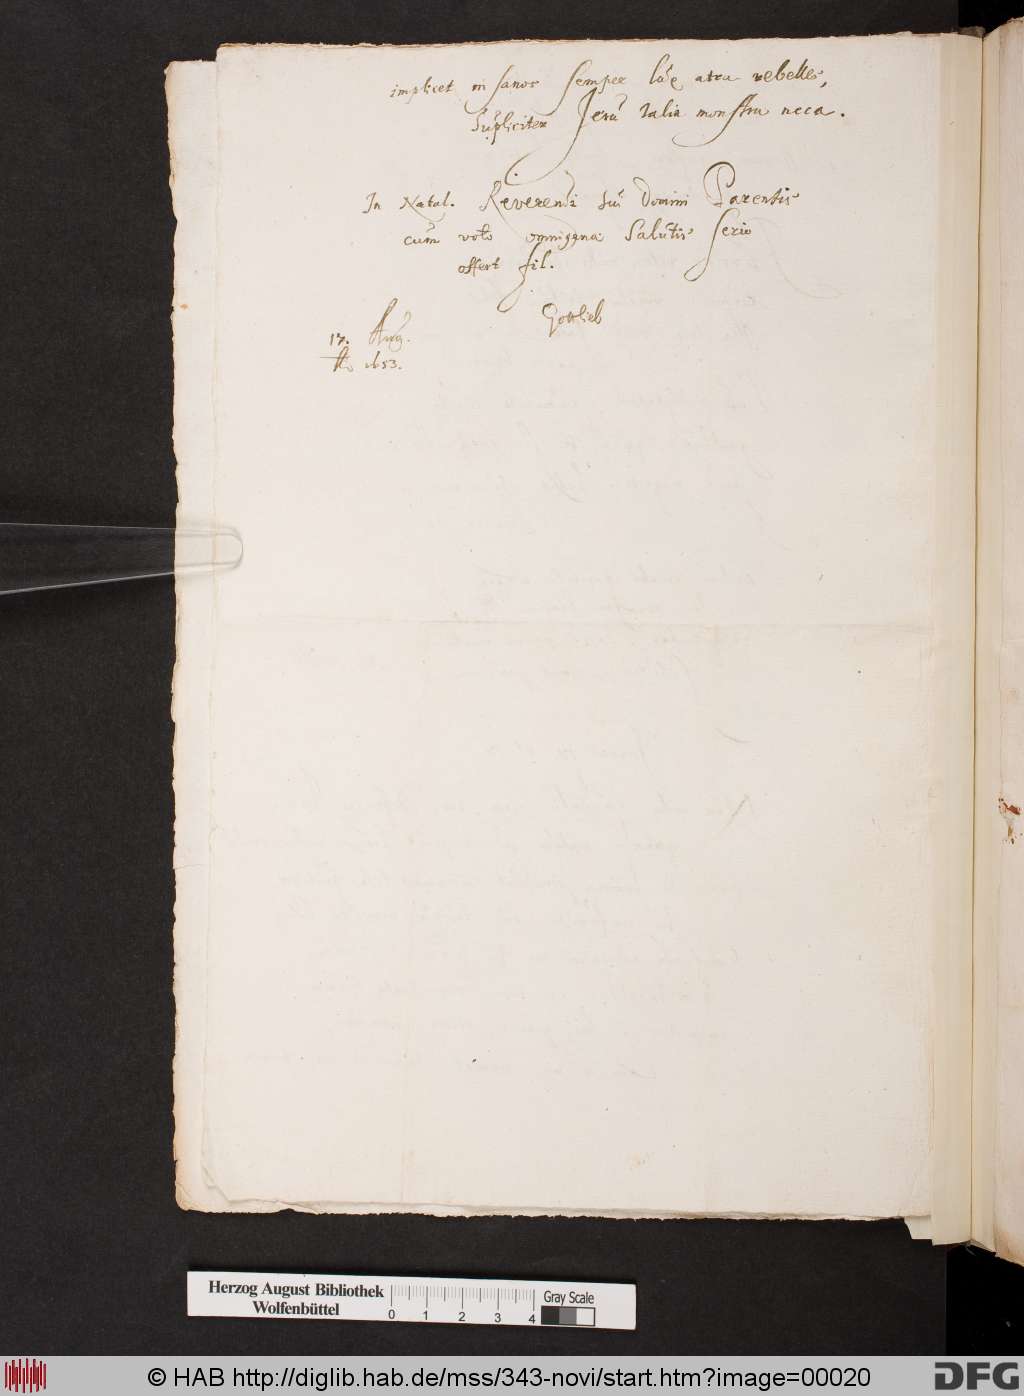 implicet insanos semper lūe atra rebelles,
Supliciter Jesu talia monstra neca.
In Natal. Reverendi sui Domini Parentis
cum voto omnigenæ Salutis serio
offert fil.
Gottlieb
17. Aug.
Ao 1653.
Herzog August Bibliothek
Wolfenbüttel
0 1 2 3 4
Gray Scale
© HAB http://diglib.hab.de/mss/343-novi/start.htm?image=00020
DFG